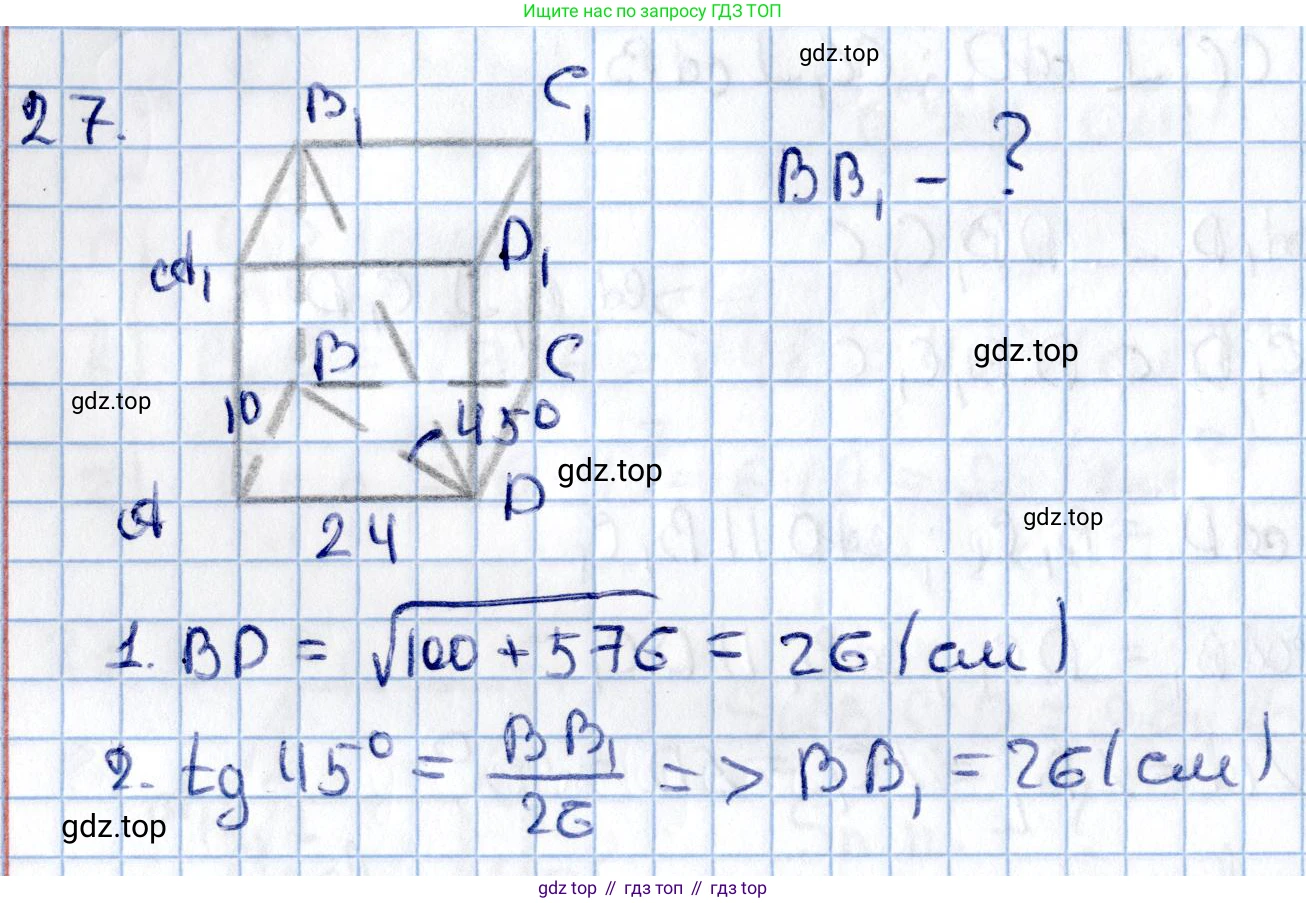 Ищите нас по запросу ГДЗ ТОП
gdz.top
27.
B₁
C₁
BB₁ - ?
A₁
D₁
B
C
gdz.top
gdz.top
10
45°
gdz.top
A
D
gdz.top
24
1. BD = √100 + 576 = 26 (см)
2. tg 45° = BB₁/26 => BB₁ = 26 (см)
gdz.top
gdz.top // гдз топ // gdz.top